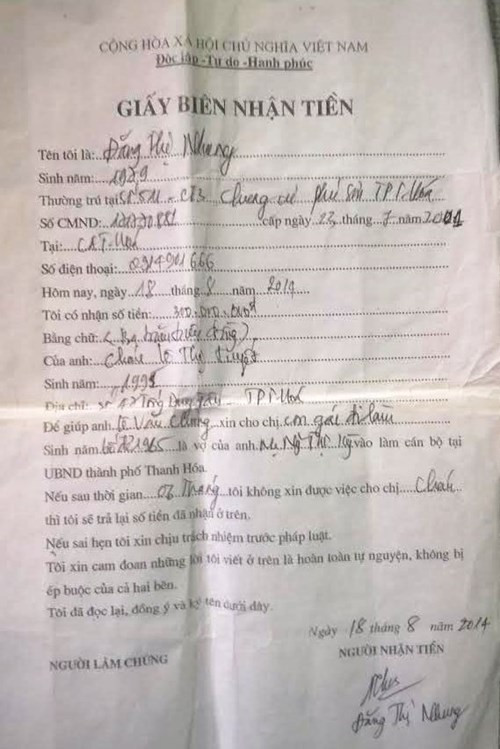 CỘNG HÒA XÃ HỘI CHỦ NGHĨA VIỆT NAM
Độc lập -Tự do -Hạnh phúc
GIẤY BIÊN NHẬN TIỀN
Tên tôi là: Đặng Thị Nhung
Sinh năm: 1979
Thường trú tại Chung cư phú Sơn TPT.Hoá
Số CMND: cấp ngày 23 tháng 7 năm 2001
Tại: CAT.Hoá
Số điện thoại: 0914901666
Hôm nay, ngày 18 tháng 8 năm 2014
Tôi có nhận số tiền: 300.000.000đ
Bằng chữ: (Ba trăm triệu đồng)
Của anh: Lê Thị
Sinh năm: 1995
Địa chỉ: TPT.Hoá
Để giúp anh Lê Văn Chung xin cho chị con gái đi làm
Sinh năm 1965 là vợ của anh vào làm cán bộ tại
UBND thành phố Thanh Hóa.
Nếu sau thời gian 02 Tháng tôi không xin được việc cho chị
thì tôi sẽ trả lại số tiền đã nhận ở trên.
Nếu sai hẹn tôi xin chịu trách nhiệm trước pháp luật.
Tôi xin cam đoan những lời tôi viết ở trên là hoàn toàn tự nguyện, không bị
ép buộc của cả hai bên.
Tôi đã đọc lại, đồng ý và ký tên dưới đây.
Ngày 18 tháng 8 năm 2014
NGƯỜI LÀM CHỨNG
NGƯỜI NHẬN TIỀN
Đặng Thị Nhung